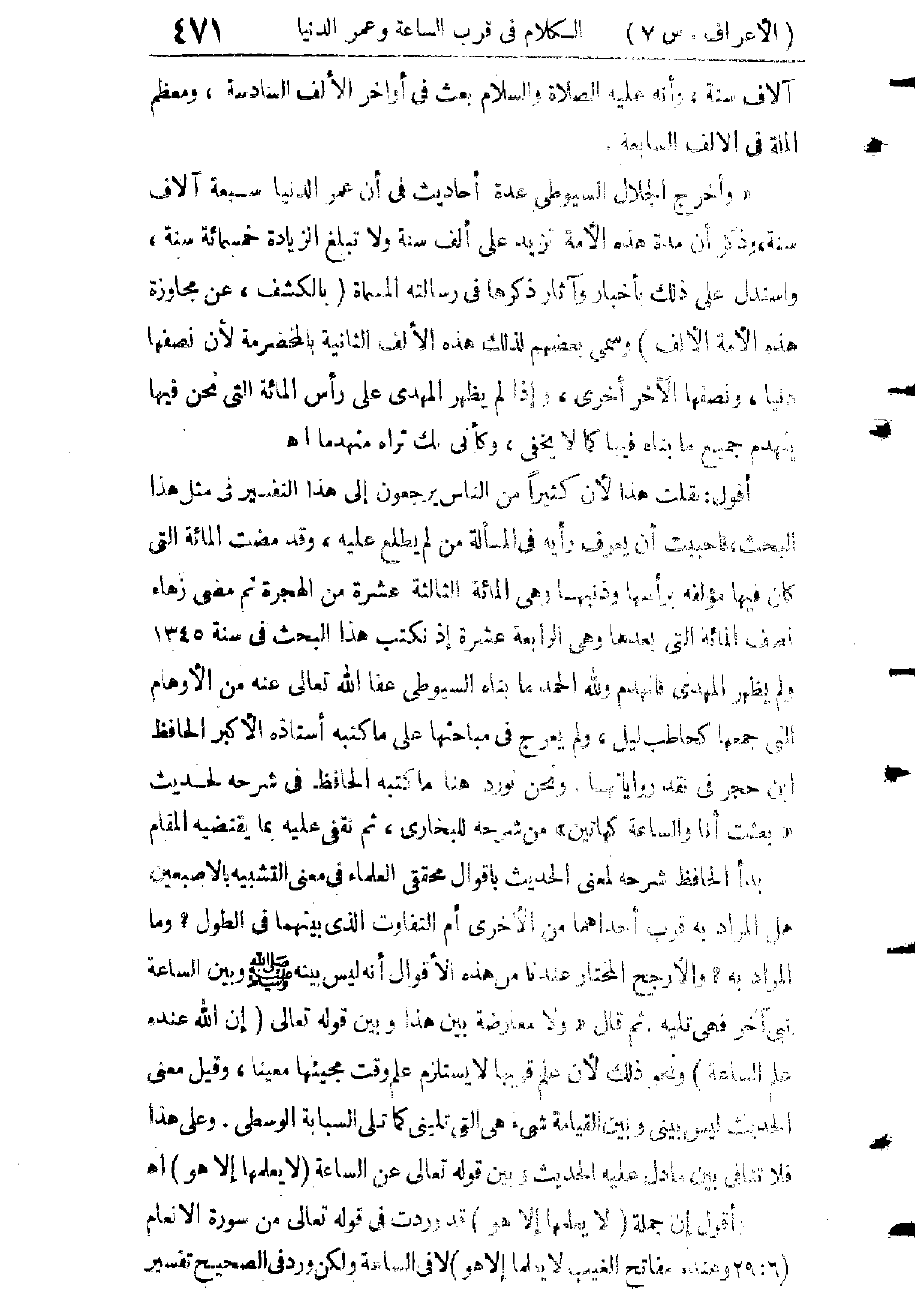 (الأعراف . س ٧) الكلام فى قرب الساعة وعمر الدنيا ٤٧١
آلاف سنة ، وأنه عليه الصلاة والسلام بعث فى أواخر الألف السادسة ، ومعظم
الملة فى الالف السابعة .
« وأخرج الجلال السيوطى عدة أحاديث فى أن عمر الدنيا سبعة آلاف
سنة، وذكر أن مدة هذه الأمة تزيد على ألف سنة ولا تبلغ الزيادة خمسمائة سنة ،
واستدل على ذلك بأخبار وآثار ذكرها فى رسالته المسماة ( بالكشف ، عن مجاوزة
هذه الأمة الألف ) وسمى بعضهم لذلك هذه الألف الثانية بالمخضرمة لأن نصفها
دنيا ، ونصفها الآخر أخرى ، وإذا لم يظهر المهدى على رأس المائة التى نحن فيها
ينهدم جميع ما بناه فيها كما لا يخفى ، وكأنى بك تراه منهدما اه
أقول: نقلت هذا لأن كثيراً من الناس يرجعون إلى هذا التفسير فى مثل هذا
البحث، فاحببت أن يعرف رأيه فى المسألة من لم يطلع عليه ، وقد مضت المائة التى
كان فيها مؤلفه برأسها وذنبها وهى المائة الثالثة عشرة من الهجرة ثم مضى زهاء
نصف المائة التى بعدها وهى الرابعة عشرة إذ نكتب هذا البحث فى سنة ١٣٤٥
ولم يظهر المهدى فانهدم ولله الحمد ما بناه السيوطى عفا الله تعالى عنه من الأوهام
التى جمعها كحاطب ليل ، ولم يعرج فى مباحثها على ما كتبه أستاذه الأكبر الحافظ
ابن حجر فى نقد رواياتها . ونحن نورد هنا ما كتبه الحافظ فى شرحه لحديث
« بعثت أنا والساعة كهاتين» من شرحه للبخارى ، ثم نقفى عليه بما يقتضيه المقام
بدأ الحافظ شرحه لمعنى الحديث باقوال محققى العلماء فى معنى التشبيه بالاصبعين
هل المراد به قرب أحداهما من الأخرى أم التفاوت الذى بينهما فى الطول ؟ وما
المراد به ؟ والأرجح المختار عندنا من هذه الأقوال أنه ليس بينه ﷺ وبين الساعة
نبى آخر فهى تليه . ثم قال « ولا معارضة بين هذا وبين قوله تعالى ( إن الله عنده
علم الساعة ) ونحو ذلك لأن علم قربها لا يستلزم علم وقت مجيئها معينا ، وقيل معنى
الحديث ليس بينى وبين القيامة شىء هى التى تلينى كما تلى السبابة الوسطى . وعلى هذا
فلا تنافى بين مادل عليه الحديث وبين قوله تعالى عن الساعة (لا يعلمها إلا هو ) اه
أقول إن جملة ( لا يعلمها إلا هو ) قد وردت فى قوله تعالى من سورة الانعام
(٢٩:٦ وعنده مفاتح الغيب لا يعلمها إلا هو )لا فى الساعة ولكن ورد فى الصحيح تفسير